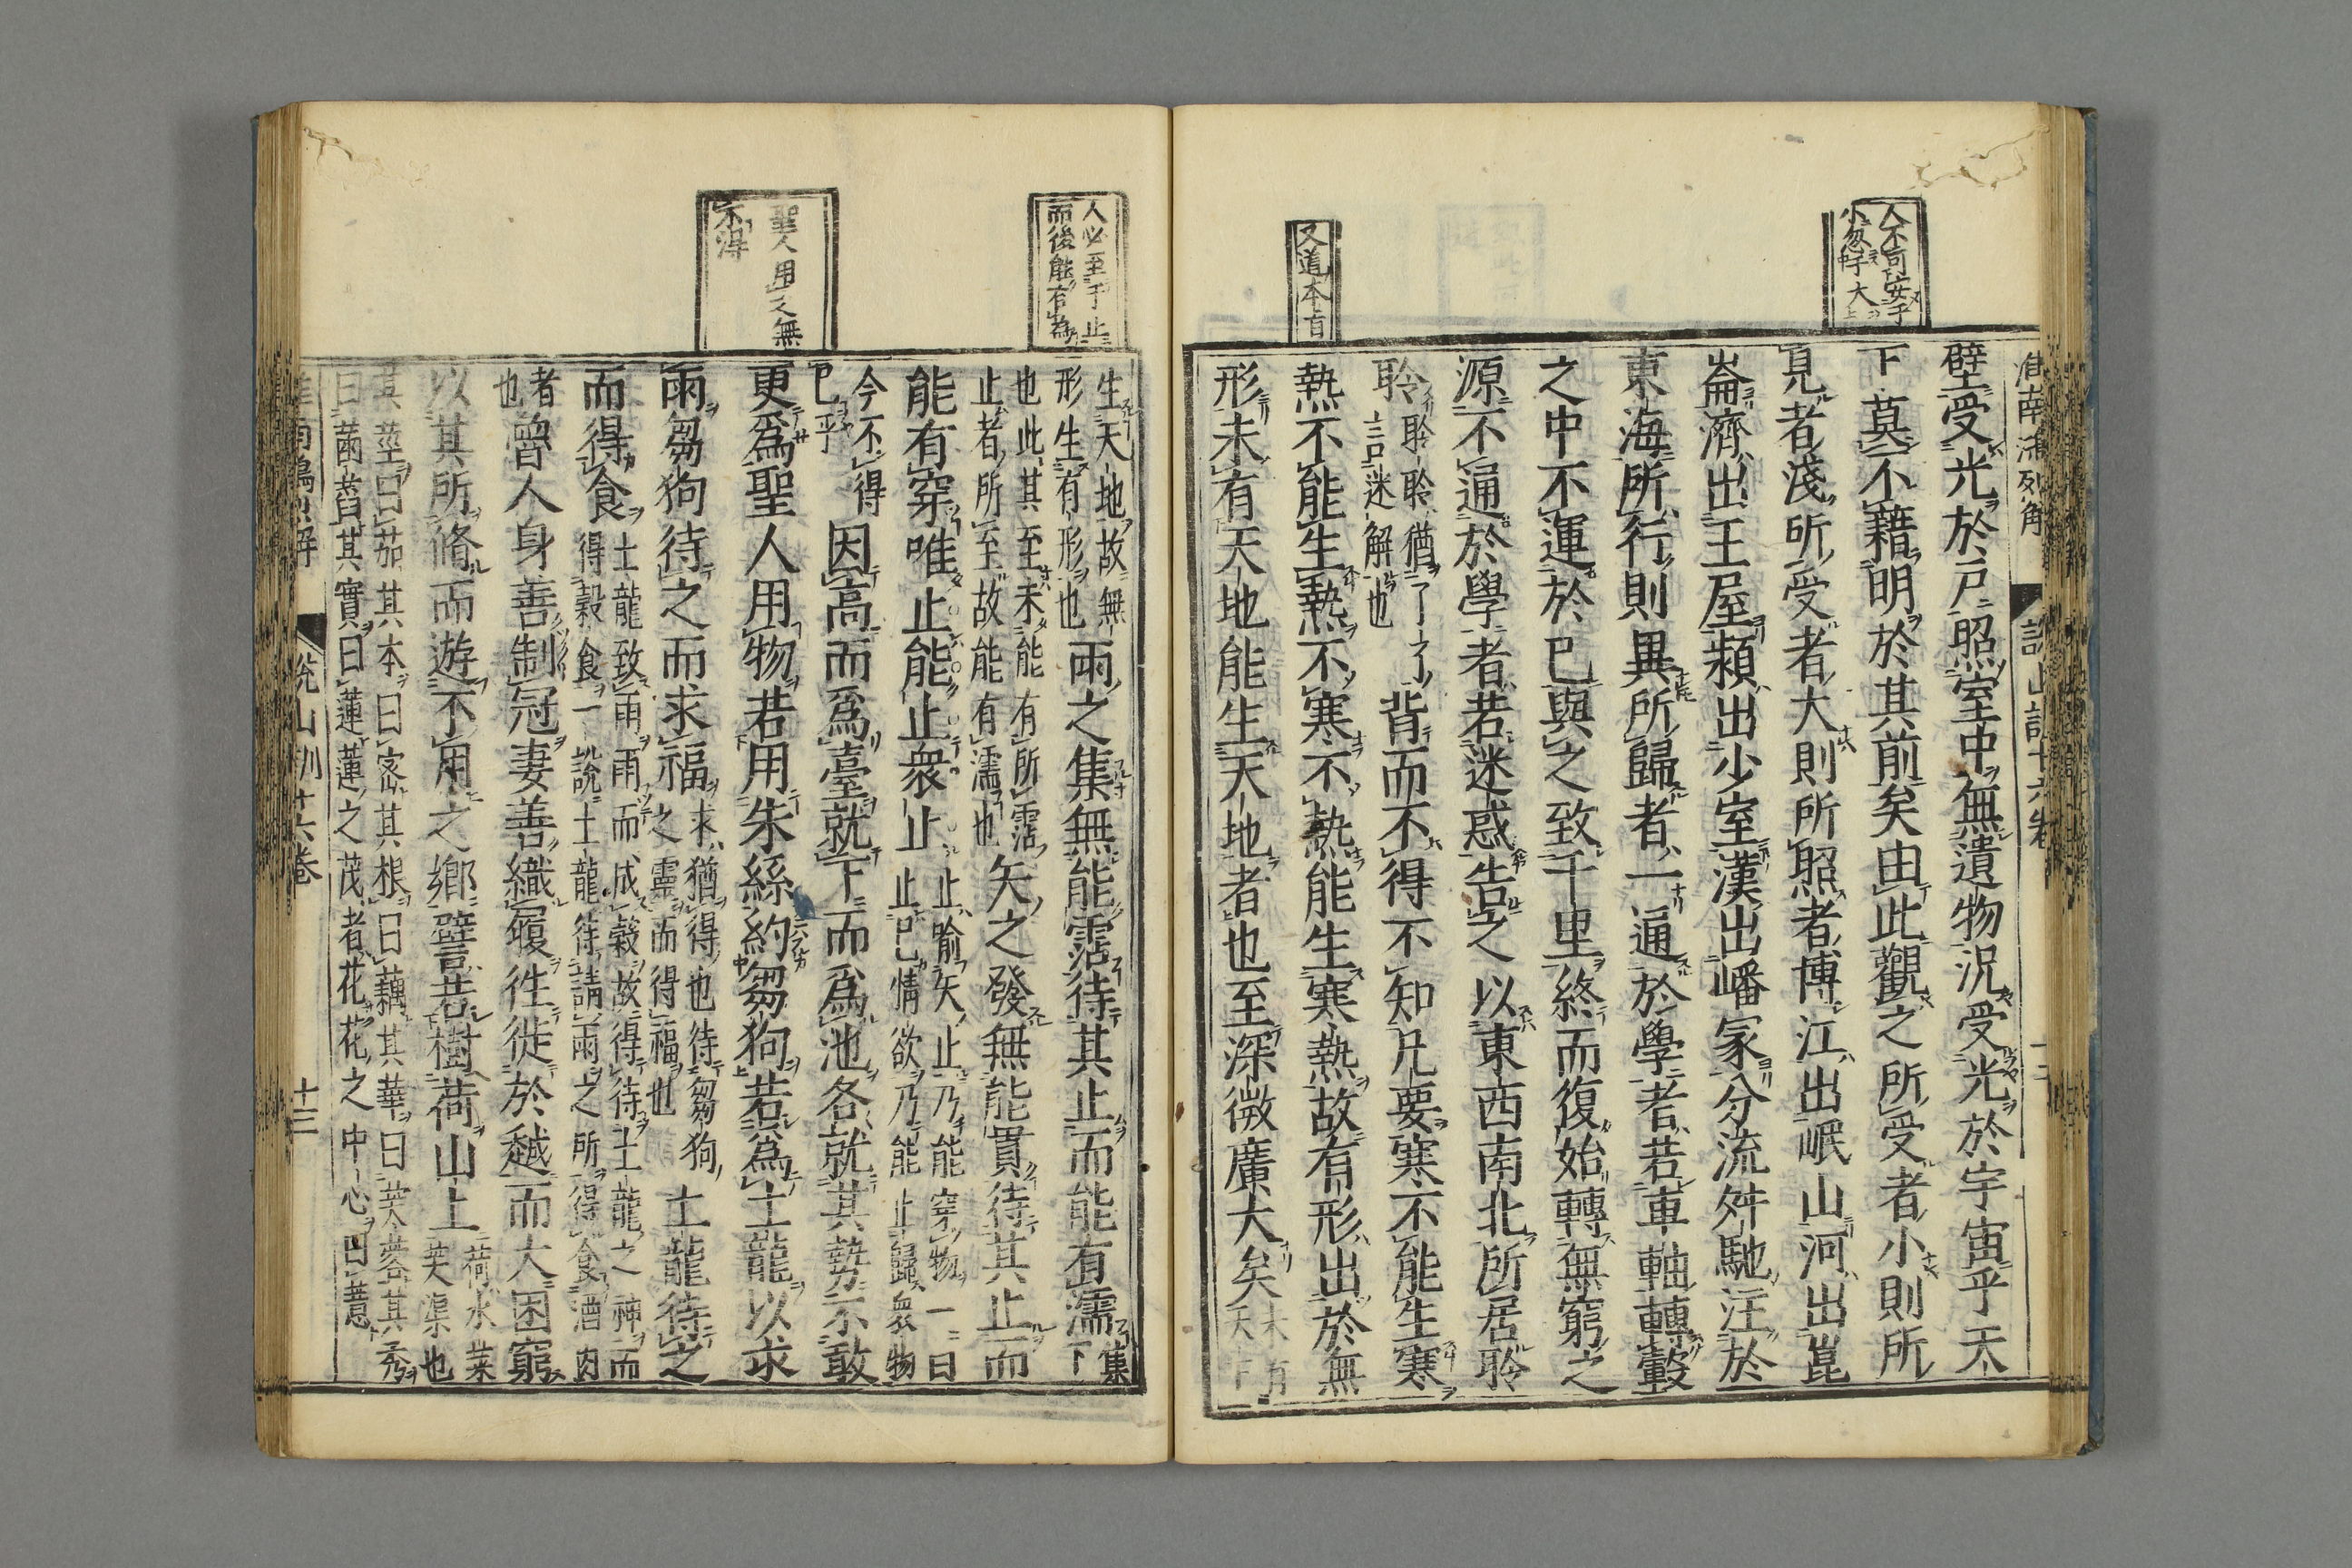 人不可安于
小忽于大
又道本有
淮南鴻列解
說山訓十六卷
十三
壁受光於戸照室中無遺物況受光於宇宙乎天
下莫不藉明於其前矣由此觀之所受者小則所
見者淺所受者大則所照者博江出岷山河出崑
崙濟出王屋潁出少室漢出嶓冢分流舛馳注於
東海所行則異所歸者一通於學者若車軸轉轂
之中不運於巳與之致千里終而復始轉無窮之
源不通於學者若迷惑告之以東西南北所居聆
聆
聆聆猶了了
言迷解也
背而不得不知凡要寒不能生寒
熱不能生熱不寒不熱能生寒熱故有形出於無
形未有天地能生天地者也至深微廣大矣
未有
天下
人必至于止
而後能有為
聖人用之無
不得
生天地故無
形生有形也
雨之集無能霑待其止而能有濡
集下
也此其至未能有所霑
止者所至故能有濡也
矢之發無能貫待其止而
能有穿唯止能止衆止
止喻矢止乃能穿物一曰
止巳情欲乃能止歸衆物
今不得
巳乎
因高而爲臺就下而爲池各就其勢不敢
更爲聖人用物若用朱絲約芻狗若爲土龍以求
雨芻狗待之而求福
求猶得也待芻狗
之靈而得福也
土龍待之
而得食
土龍致雨雨而成穀故得待土龍之神而
得穀食一說土龍待請雨之所得食酒肉
者
也
曾人身善制冠妻善織履徃徙於越而大困窮
以其所脩而遊不用之鄉譬若樹荷山上
荷水菜
芙渠也
其莖曰茄其本曰密其根曰藕其華曰芙蓉其秀
曰菡萏其實曰蓮蓮之茂者花花之中心曰薏
淮南鴻烈解
說山訓十六卷
十三